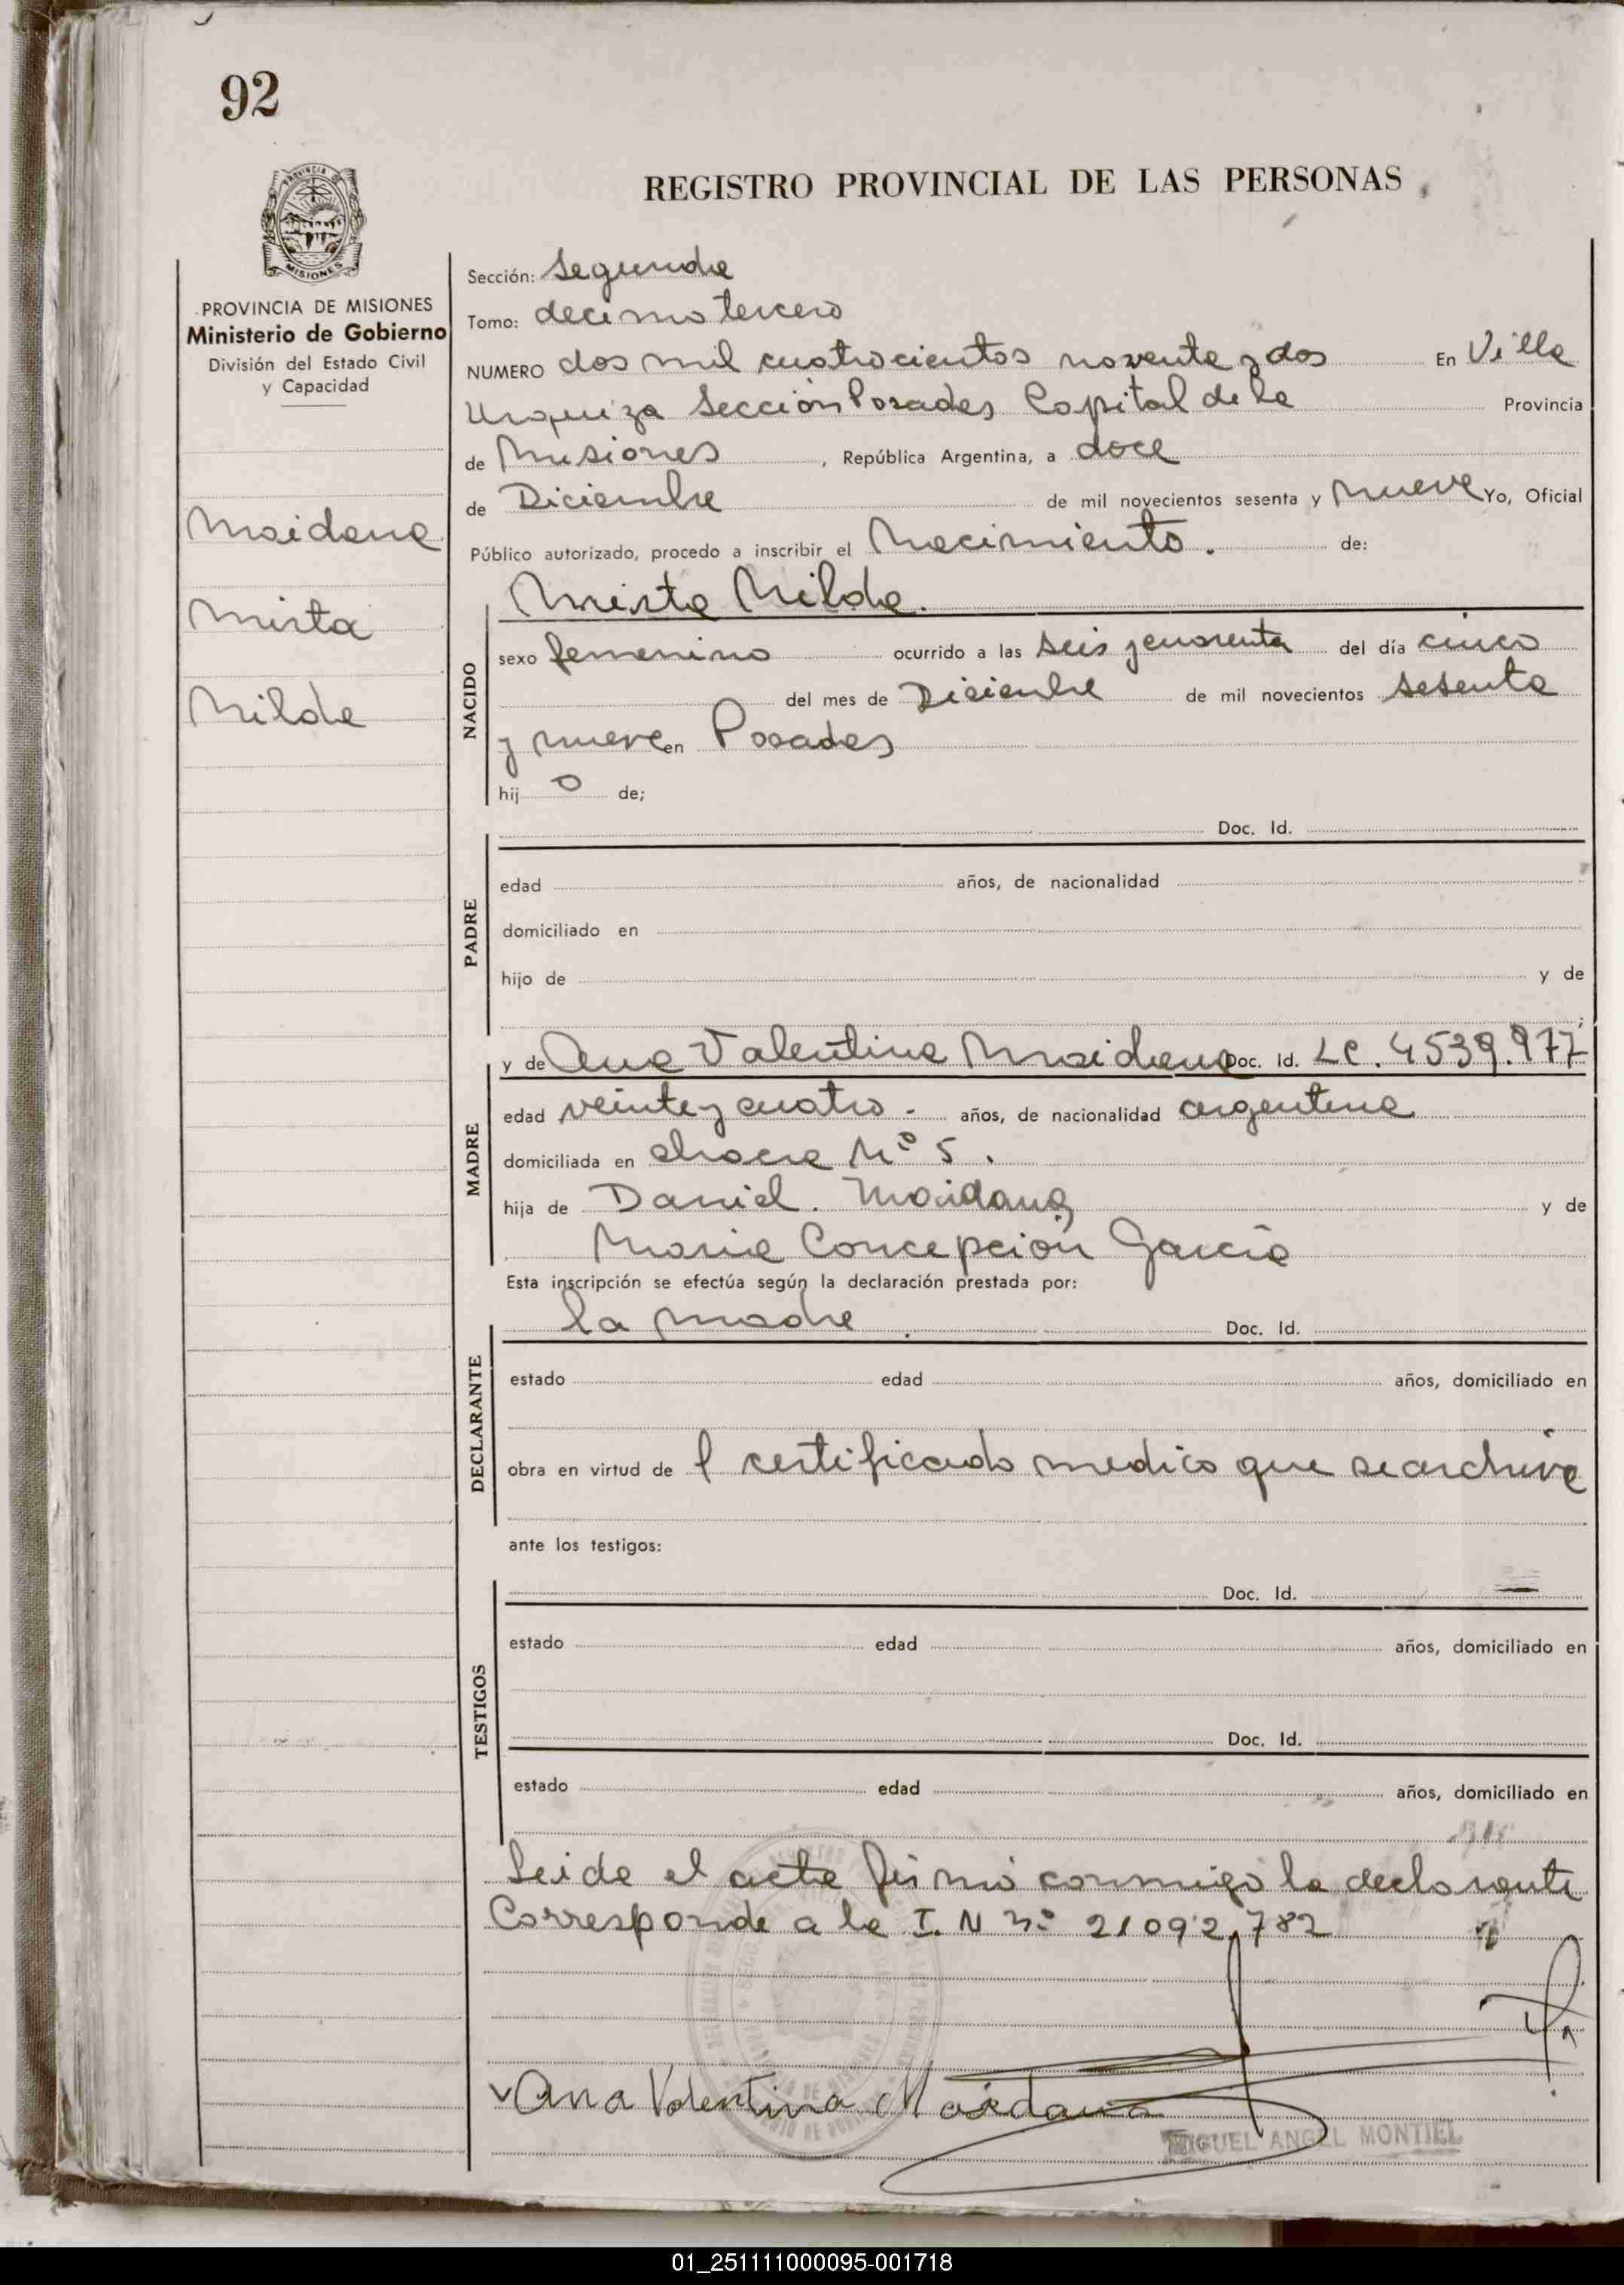 92
PROVINCIA DE
MISIONES
PROVINCIA DE MISIONES
Ministerio de Gobierno
División del Estado Civil
y Capacidad
Maidana
Mirta
Nilda
REGISTRO PROVINCIAL DE LAS PERSONAS
Sección: Segunda
Tomo: decimo tercero
NUMERO dos mil cuatrocientos noventa y dos En Villa
Urquiza Sección Posadas Capital de la Provincia
de Misiones, República Argentina, a doce
de Diciembre de mil novecientos sesenta y nueve Yo, Oficial
Público autorizado, procedo a inscribir el Nacimiento. de:
Mirta Nilda.
NACIDO
sexo femenino ocurrido a las seis y cuarenta del día cinco
del mes de Diciembre de mil novecientos sesenta
y nueve en Posadas
hij o de;
PADRE
Doc. Id.
edad años, de nacionalidad
domiciliado en
hijo de y de
MADRE
y de Ana Valentina Maidana Doc. Id. LC. 4539.977
edad veinte y cuatro - años, de nacionalidad argentina
domiciliada en chacra Nº 5.
hija de Daniel. Maidana y de
Maria Concepción García
Esta inscripción se efectúa según la declaración prestada por:
DECLARANTE
la madre. Doc. Id.
estado edad años, domiciliado en
obra en virtud de l certificado medico que se archiva
ante los testigos:
TESTIGOS
Doc. Id.
estado edad años, domiciliado en
Doc. Id.
estado edad años, domiciliado en
Leida el acta firmó conmigo la declarante
Corresponde a la I. N nº 21092.782
Ana Valentina Maidana
MIGUEL ANGEL MONTIEL
01_251111000095-001718